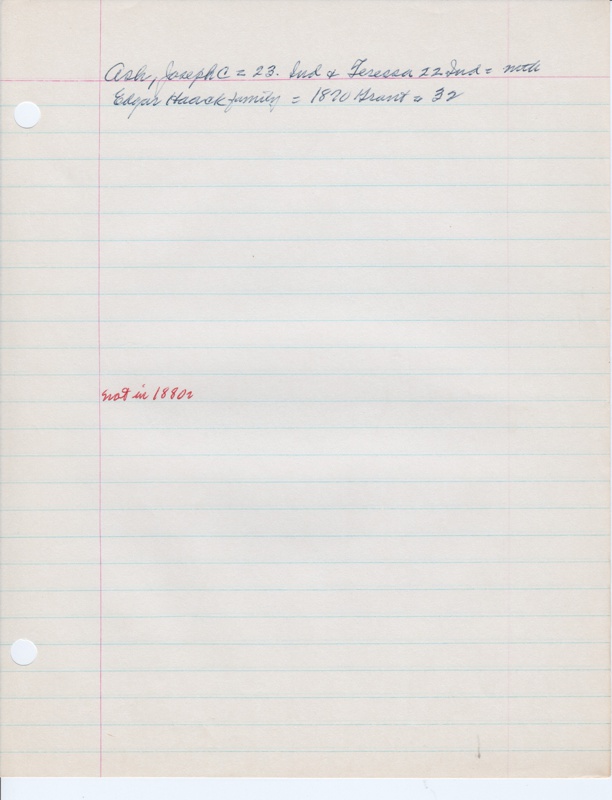 Ash, Joseph C = 23. Ind & Teressa 22 Ind = with
Edgar Haack family = 1870 Grant = 32
not in 1880